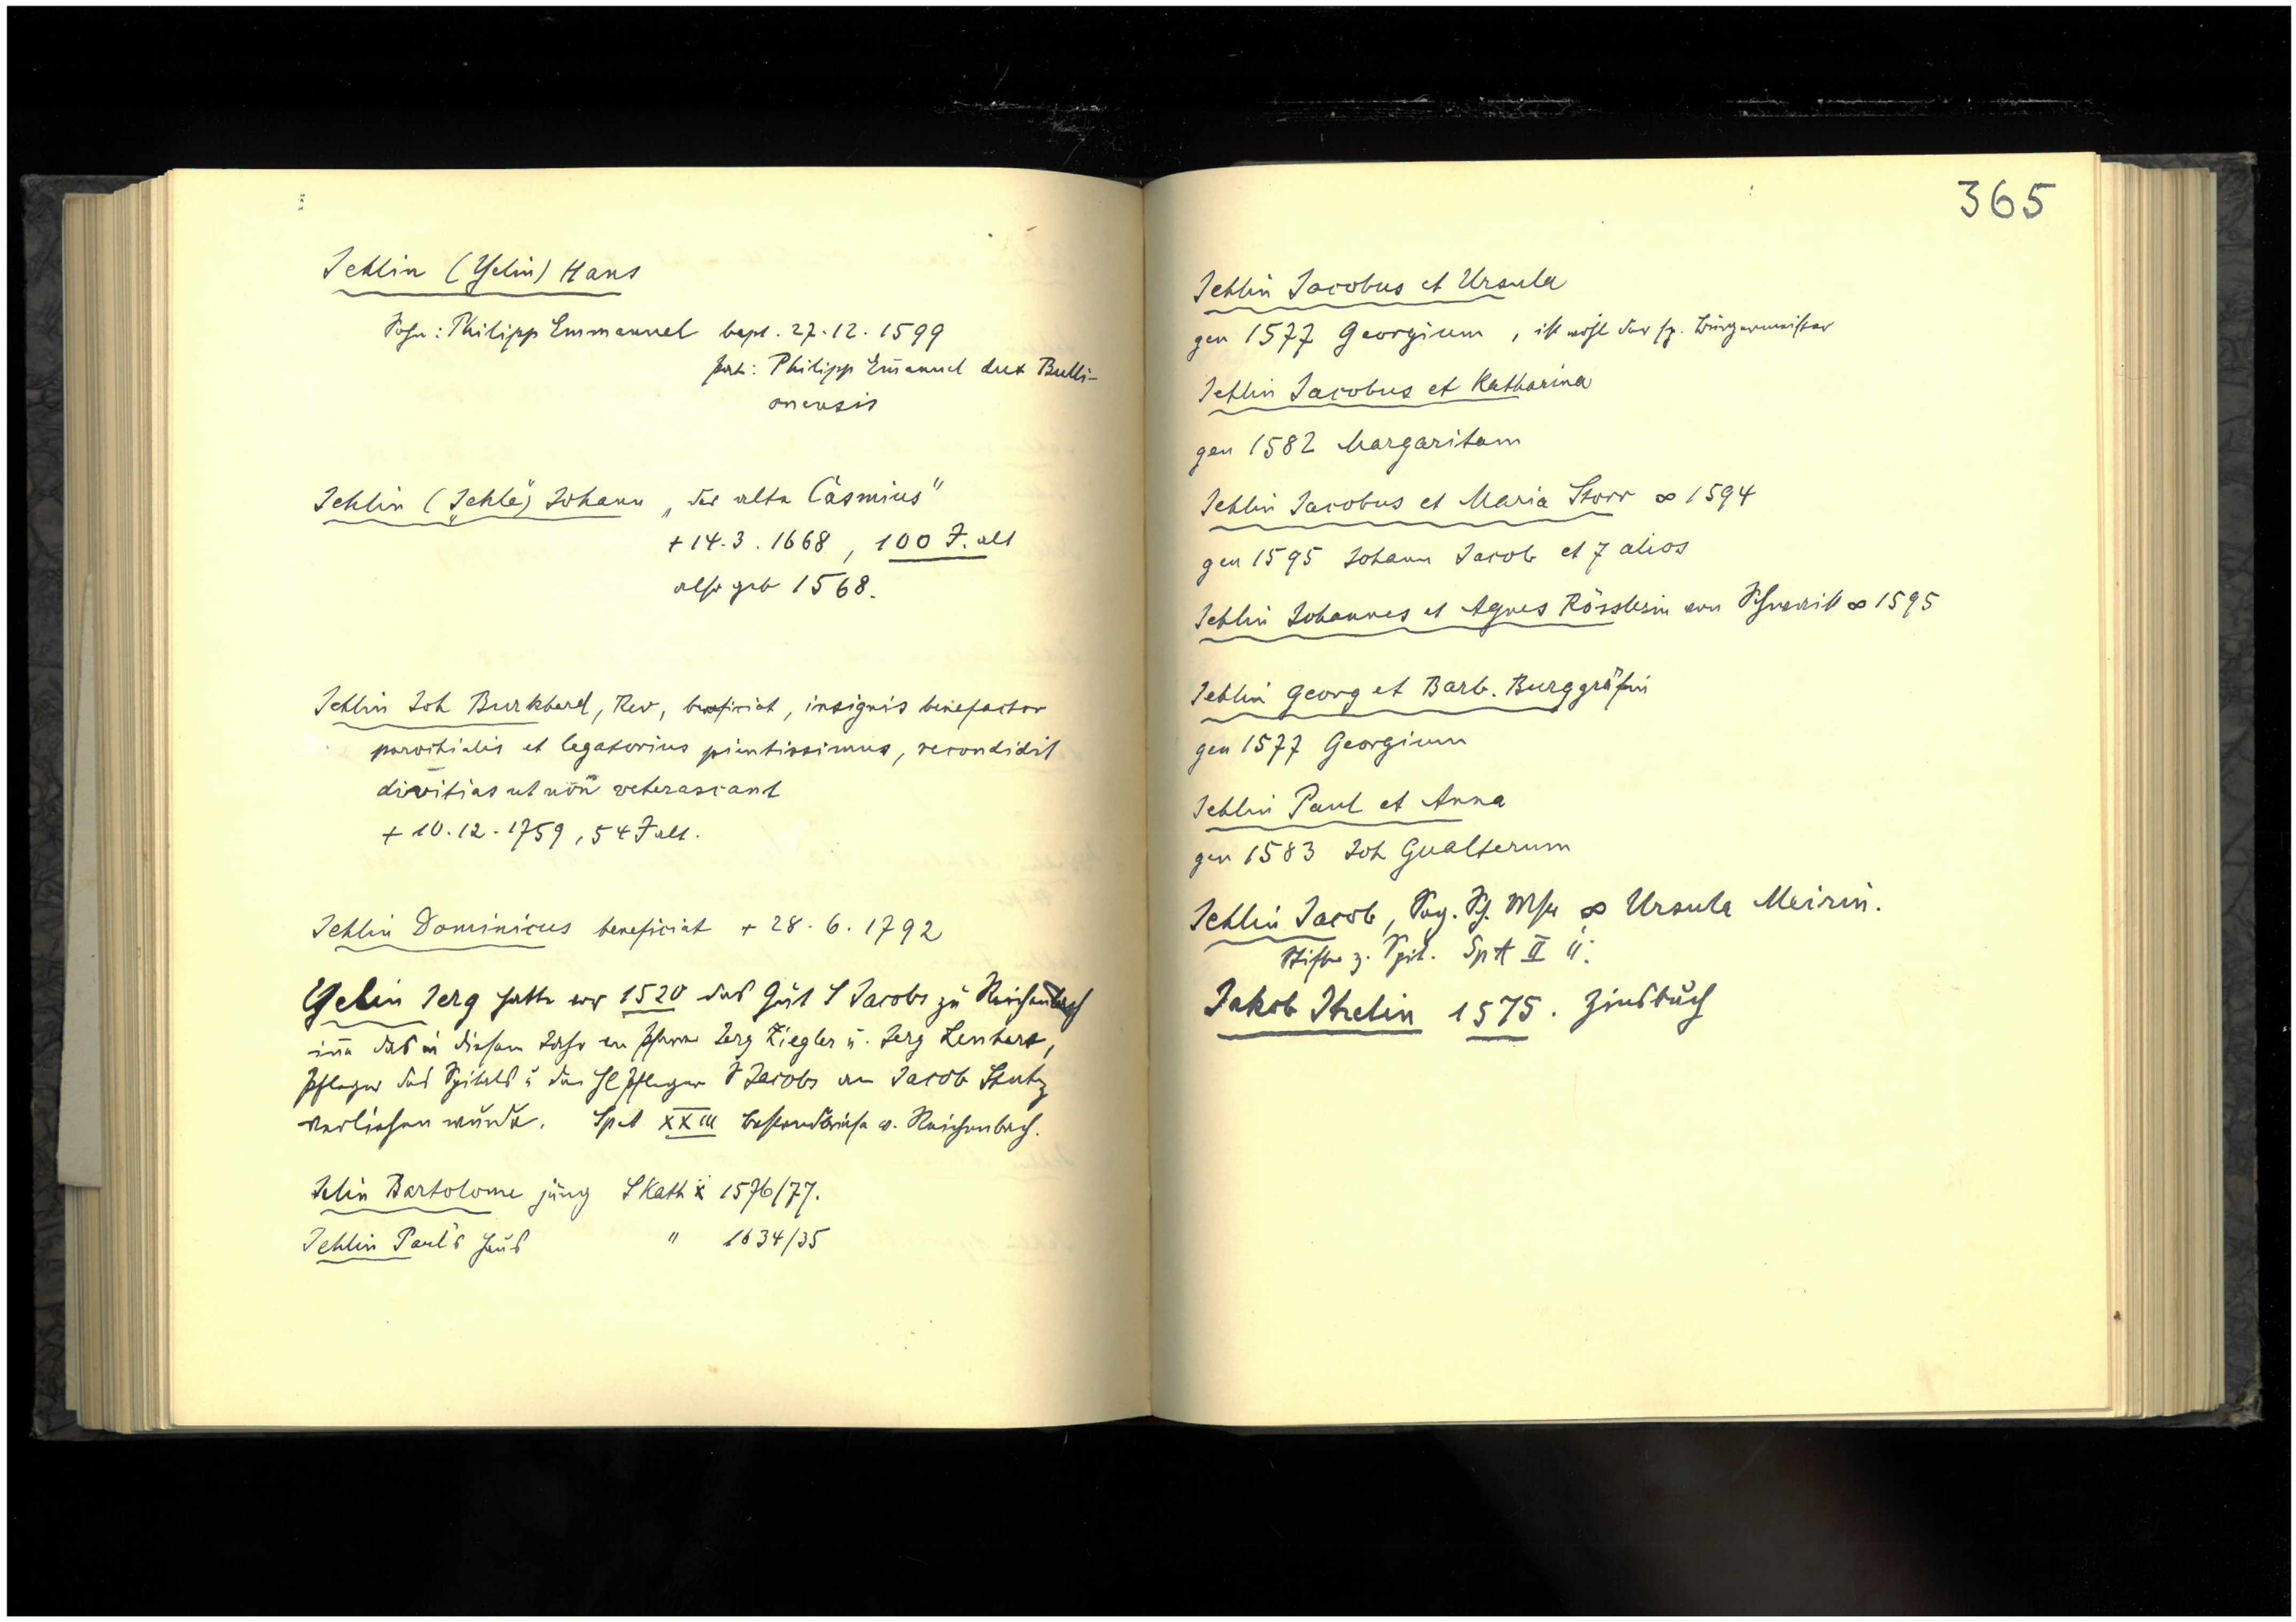 Jehlin (Yelin) Hans
Sohn: Philipp Emmanuel bapt. 27.12.1599
pat: Philipp Em̄anuel dux Bulli-
onensis
Jehlin („Jehle“) Johann „der alte Casmius“
+ 14.3.1668, 100 J. alt
also geb 1568.
Jehlin Joh Burkhard, Rev, beneficiat, insignis benefactor
parochialis et legatorius pientissimus, recondidit
divitias ut non veterascant
+ 10.12.1759, 54 J alt.
Jehlin Dominicus beneficiat + 28.6.1792
Yelin Jerg hatte vor 1520 das Gut S Jacobs zu Reichenbach
inne das in diesem Jahr von Jerg Ziegler u. Jerg
Pfleger des Spitals u den hl Pfleger S Jacobs an Jacob Stutz
verliehen wurde. SpA XXIII Bestandbriefe v. Reichenbach.
Jelin Bartolome jung S Kath 1576/77.
Jehlin Paul's Haus " 1634/35
365
Jehlin Jacobus et Ursula
gen 1577 Georgium, ist wohl der sp. Bürgermeister
Jehlin Jacobus et Katharina
gen 1582 Margaritam
Jehlin Jacobus et Maria Storr ∞ 1594
gen 1595 Johann Jacob et 7 alios
Jehlin Johannes et Agnes Rösslerin von ∞ 1595
Jehlin Georg et Barb. Burggräfin
gen 1577 Georgium
Jehlin Paul et Anna
gen 1583 Joh Gualterum
Jehlin Jacob, ∞ Ursula Meirin.
Stifter z. Spit. SpA II ü.
Jakob Jhelin 1575. Zinsbuch